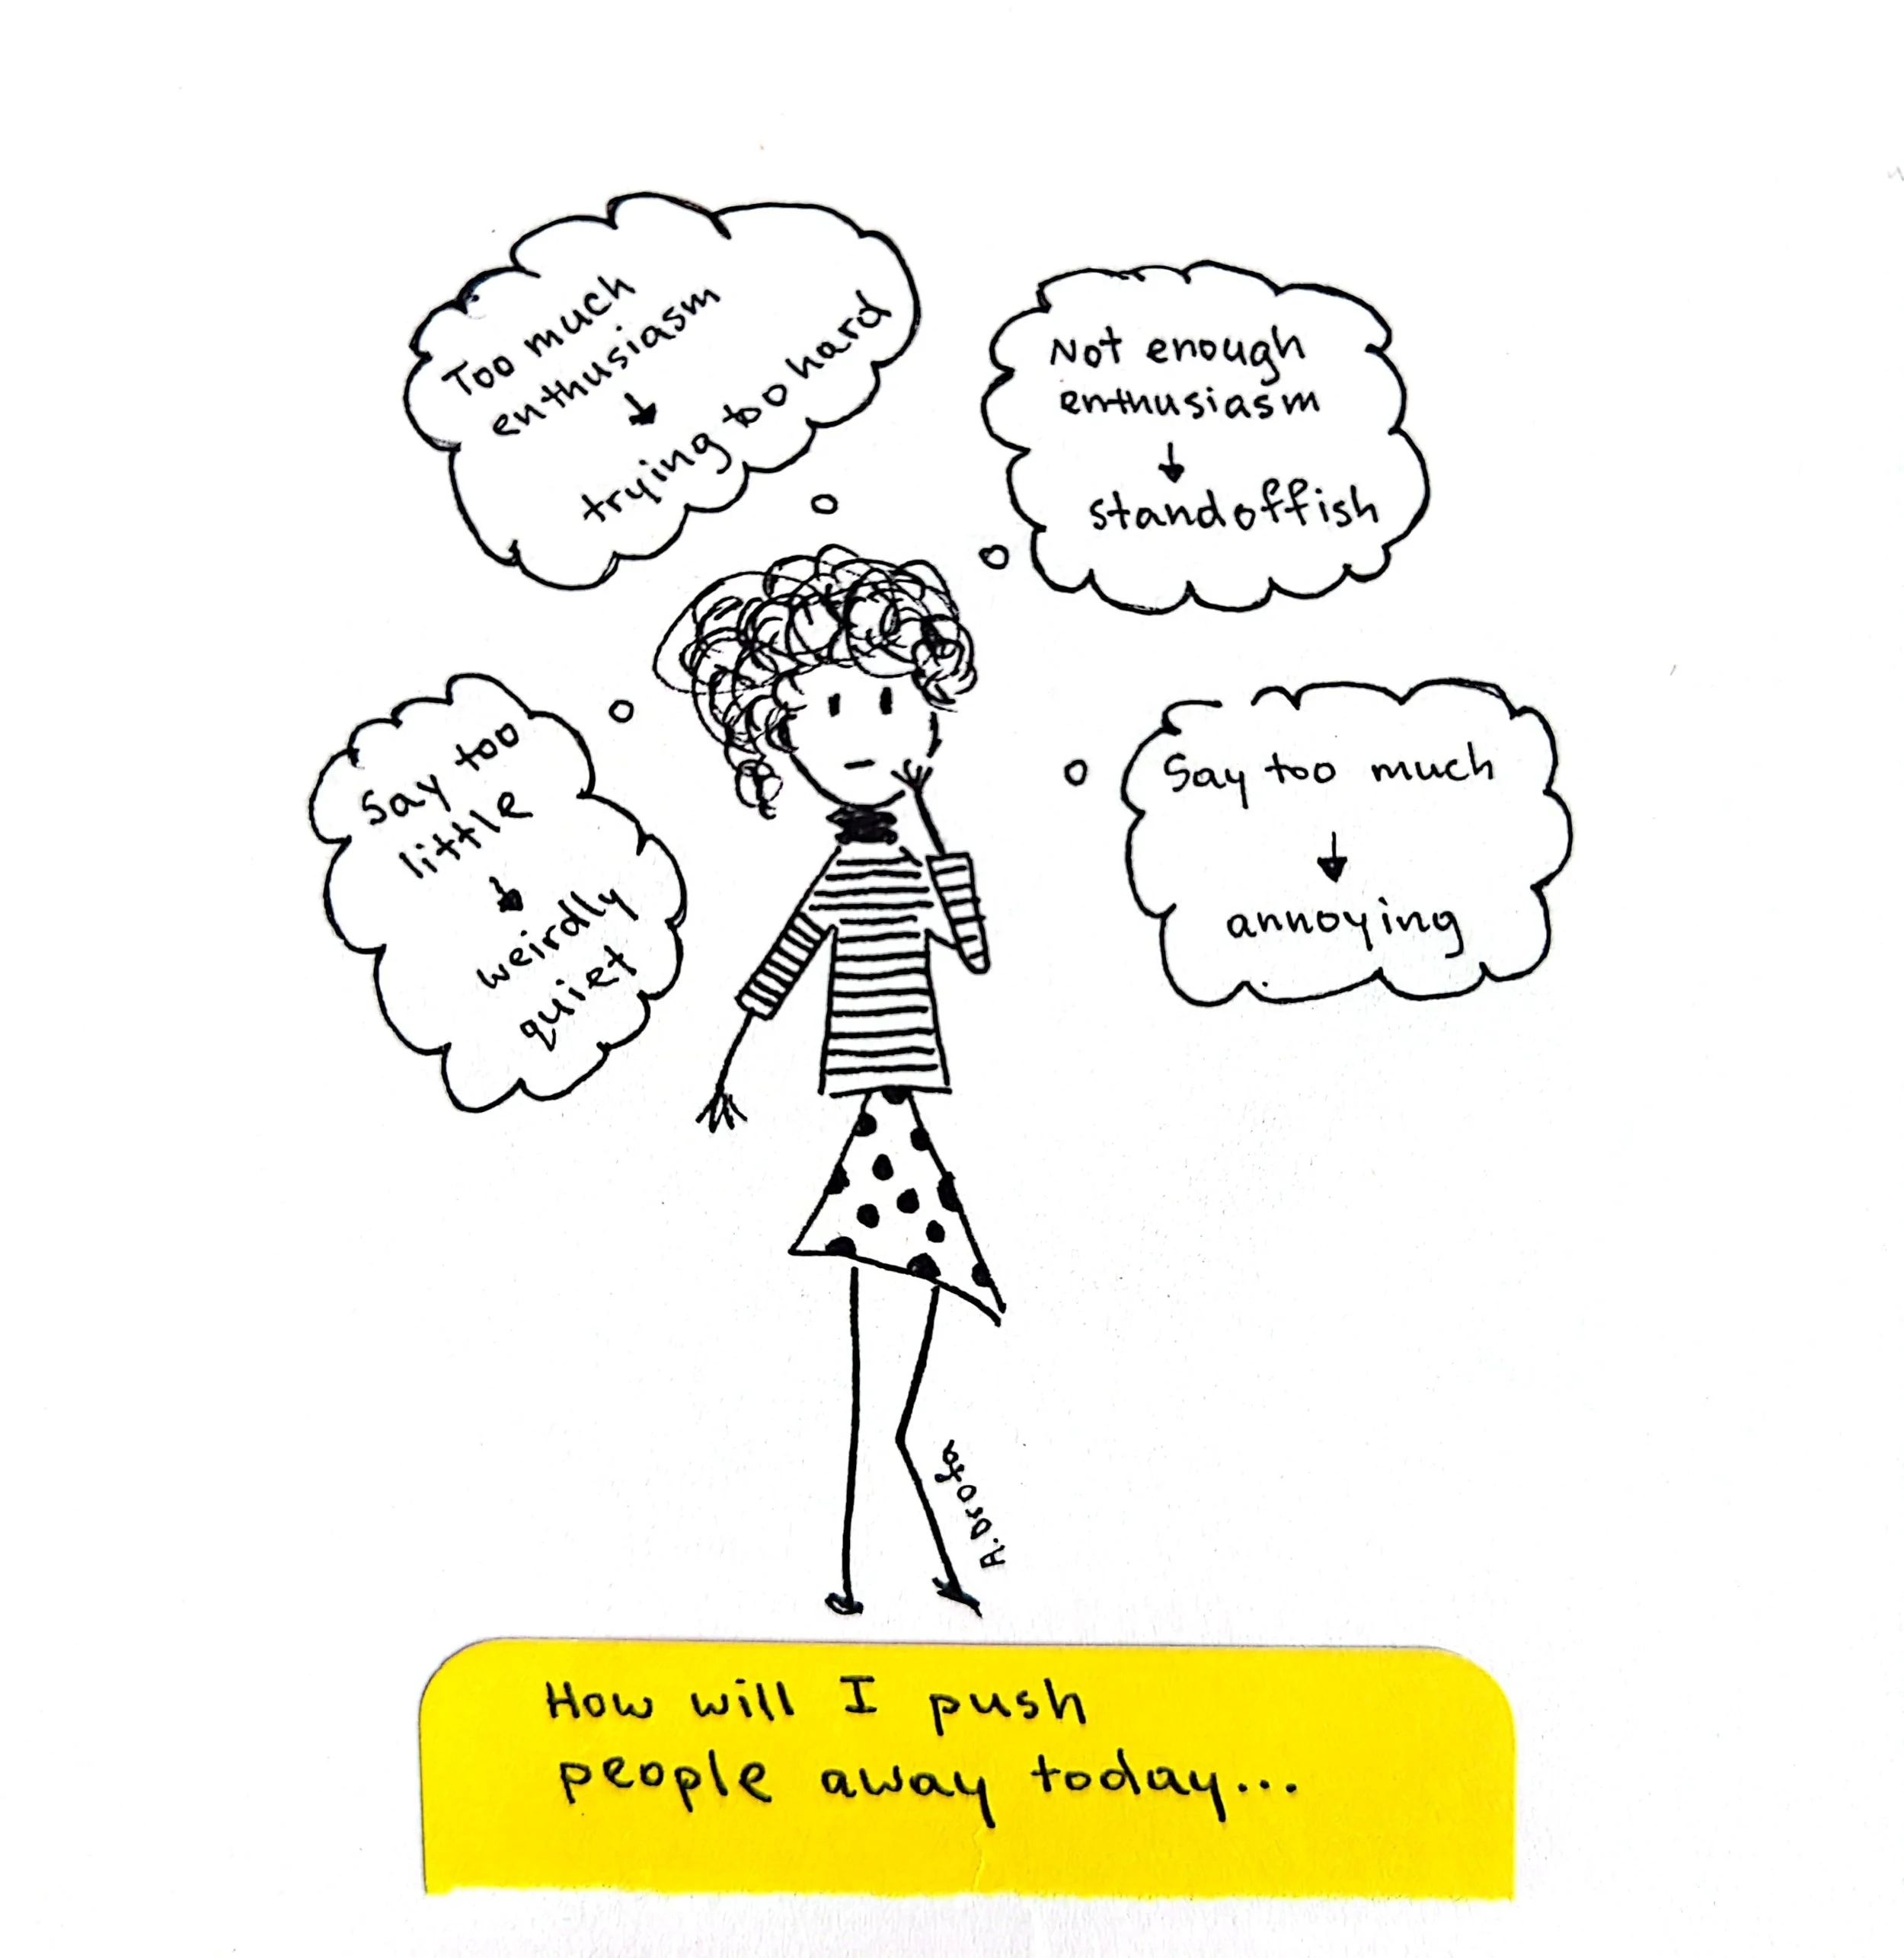 Too much
enthusiasm
trying too hard
Not enough
enthusiasm
standoffish
Say too
little
weirdly
quiet
Say too much
annoying
How will I push
people away today...